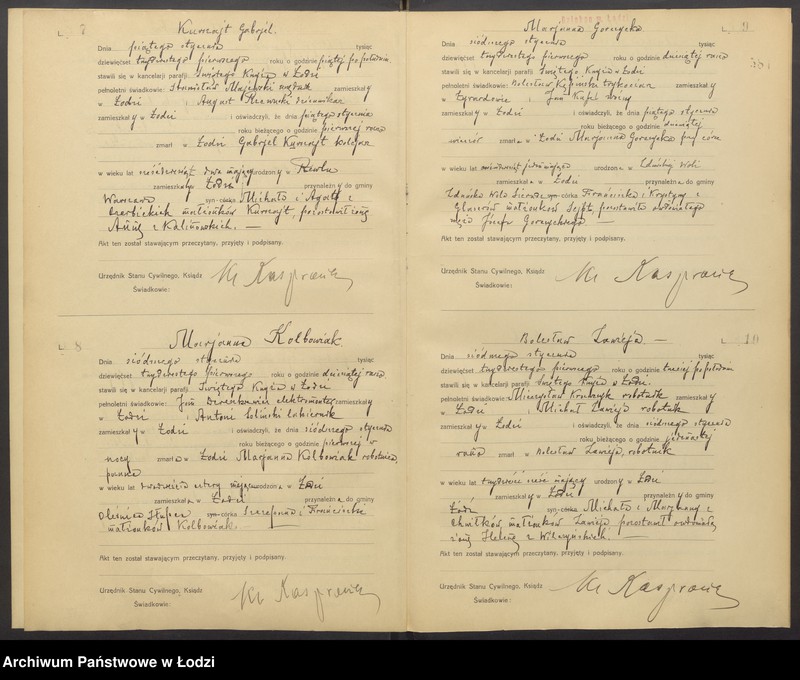 L. 7
Kurczajt Gabrjel.
Dnia piątego stycznia tysiąc
dziewięćset trzydziestego pierwszego roku o godzinie piątej po południu
stawili się w kancelarji parafji Świętego Krzyża w Łodzi
pełnoletni świadkowie: Stanisław Majewski zamieszkały
w Łodzi i August
zamieszkały w Łodzi i oświadczyli, że dnia piątego stycznia
roku bieżącego o godzinie pierwszej rano
zmarł w Łodzi Gabrjel Kurczajt
w wieku lat sześćdziesiąt dwa mający urodzony w
zamieszkały w Łodzi przynależny do gminy
Warszawa syn-córka Michała i Agaty z
małżonków Kurczajt pozostawił żonę
Annę z Kalinowskich. —
Akt ten został stawającym przeczytany, przyjęty i podpisany.
Urzędnik Stanu Cywilnego, Ksiądz
Świadkowie:
L. 8
Marjanna Kolbowiak
Dnia siódmego stycznia tysiąc
dziewięćset trzydziestego pierwszego roku o godzinie dziesiątej rano
stawili się w kancelarji parafji Świętego Krzyża w Łodzi
pełnoletni świadkowie: Jan elektromonter zamieszkały
w Łodzi i Antoni Loliński lakiernik
zamieszkały w Łodzi i oświadczyli, że dnia siódmego stycznia
roku bieżącego o godzinie pierwszej w
nocy zmarła w Łodzi Marjanna Kolbowiak robotnica,
panna
w wieku lat dwadzieścia cztery mająca urodzona w Łodzi
zamieszkała w Łodzi przynależna do gminy
syn-córka Szczepana i Franciszki
małżonków Kolbowiak. —
Akt ten został stawającym przeczytany, przyjęty i podpisany.
Urzędnik Stanu Cywilnego, Ksiądz
Świadkowie:
L. 9
381
Marjanna Gorzycka
Dnia siódmego stycznia tysiąc
dziewięćset trzydziestego pierwszego roku o godzinie dziesiątej rano
stawili się w kancelarji parafji Świętego Krzyża w Łodzi
pełnoletni świadkowie: Bolesław Kępiński zamieszkały
w Żyrardowie i Jan
zamieszkały w Łodzi i oświadczyli, że dnia piątego stycznia
roku bieżącego o godzinie dziesiątej
wieczór zmarła w Łodzi Marjanna Gorzycka przy córce
w wieku lat jeden mająca urodzona w Zduńskiej Woli
zamieszkała w Łodzi przynależna do gminy
Zduńska Wola Sieradz syn-córka Franciszka i Krystyny z
małżonków pozostawiła owdowiałego
męża Józefa Gorzyckiego —
Akt ten został stawającym przeczytany, przyjęty i podpisany.
Urzędnik Stanu Cywilnego, Ksiądz
Świadkowie:
L. 10
Bolesław Zawieja. —
Dnia siódmego stycznia tysiąc
dziewięćset trzydziestego pierwszego roku o godzinie trzeciej po południu
stawili się w kancelarji parafji Świętego Krzyża w Łodzi.
pełnoletni świadkowie: Mieczysław robotnik zamieszkały
w Łodzi i Michał Zawieja robotnik
zamieszkały w Łodzi i oświadczyli, że dnia siódmego stycznia
roku bieżącego o godzinie
rano zmarł w Bolesław Zawieja, robotnik
w wieku lat trzydzieści sześć mający urodzony w Łodzi
zamieszkały w Łodzi przynależny do gminy
Łódź syn-córka Michała i Marjanny z
małżonków Zawieja pozostawił owdowiałą
żonę Helenę z Wilczyńskich. —
Akt ten został stawającym przeczytany, przyjęty i podpisany.
Urzędnik Stanu Cywilnego, Ksiądz
Świadkowie:
Archiwum Państwowe w Łodzi